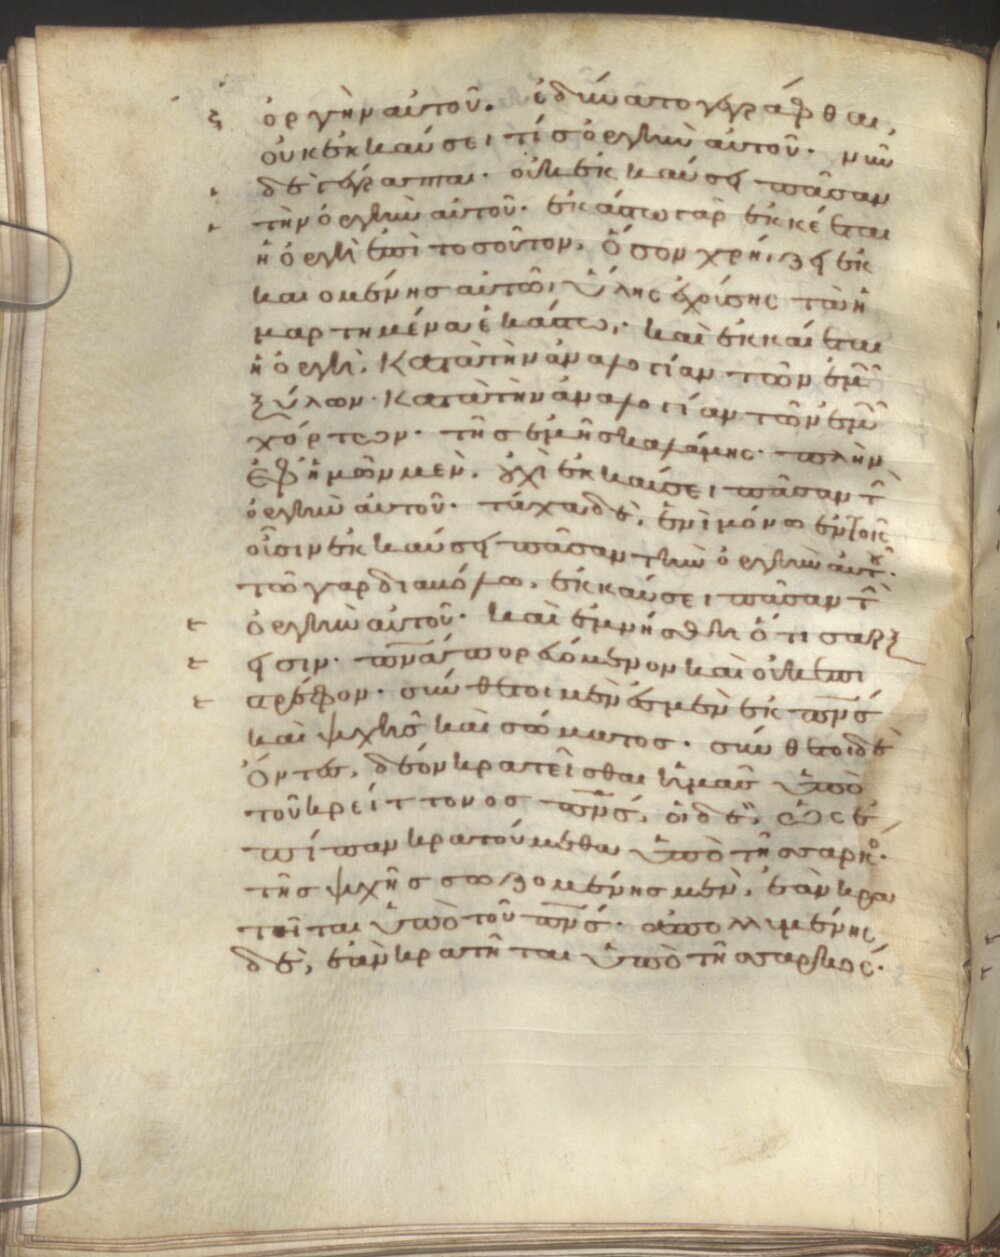 ὀργὴν αὐτοῦ. ἐδύνατο γεγράφθαι,
οὐκ ἐκκαύσει τίς ὀργὴν αὐτοῦ. νῦν
δὲ γέγραπται. οὐκ ἐκκαύσει πᾶσαν
τὴν ὀργὴν αὐτοῦ. ἑκάστω γὰρ ἐκκέεται
ἡ ὀργὴ ἐπὶ τοσοῦτον, ὅσον χρήζει ἐκ
καιομένης αὐτῶ, ὕλης χρίσης τὰ ἡ
μαρτημένα ἑκάστω, καὶ ἐκκαίεται
ἡ ὀργὴ, κατὰ τὴν ἀναλογίαν τῶν ἐμῶ
ξύλων. κατὰ τὴν ἀναλογίαν τῶν ἐμῶ
χόρτων. τῆς ἐμῆς καλάμης. πλὴν
ἐφ ἡμῶν μὲν, οὐχὶ ἐκκαύσει πᾶσαν τ
ὀργὴν αὐτοῦ. τάχα δὲ, ἑνὶ μόνω ἐν τοῖς
οὖσιν ἐκκαύσει πᾶσαν τὴν ὀργὴν αὐτοῦ.
τῶ γὰρ διαβόλω, ἐκκαύσει πᾶσαν τ
ὀργὴν αὐτοῦ. καὶ ἐμνήσθη ὅτι σαρξ
εἰσιν. πνα πορευόμενον καὶ οὐκ ἐπι
στρέφον. σύνθετοι μὲν ἐσμὲν ἐκ πνς
καὶ ψυχῆς καὶ σώματος. σύνθετοι δὲ
ὄντες, δέον κρατεῖσθαι ἡμᾶς ὑπὸ
τοῦ κρείττονος πνς, οἱ δὲ, ὡς ἐ
πίπαν κρατούμεθα ὑπὸ τῆς σαρκο.
τῆς ψυχῆς σωζομένης μὲν, ἐὰν κρα
τεῖται ὑπὸ τοῦ πνς. ἀπολλυμένης
δὲ, ἐὰν κρατῆται ὑπὸ τῆς σαρκός.